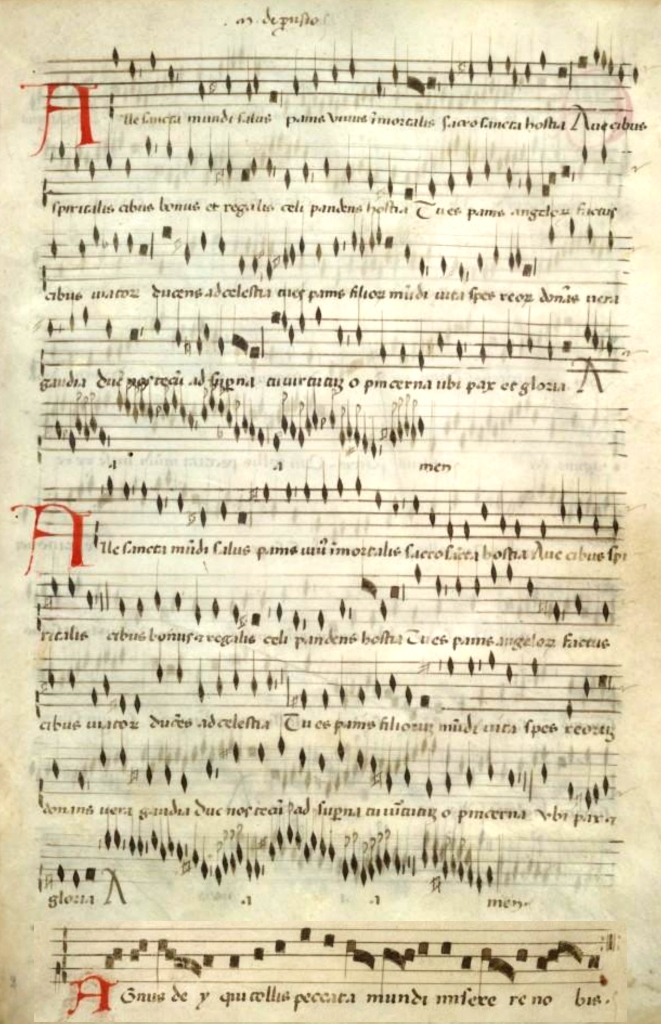 m. de perusio
Ave sancta mundi salus panis vivus imortalis sacrosancta hostia Ave cibus
spiritalis cibus bonus et regalis celi pandens hostia Tu es panis angelor factus
cibus viator ducens ad celestia tu es panis filior mūdi vita spes reor donās vera
gaudia duc nos tecū ad supna tu virtutuȝ o pincerna ubi pax et gloria A
a a men
Ave sancta mūdi salus panis vivū īmortalis sacrosācta hostia Ave cibus spi
ritalis cibus bonus et regalis celi pandens hostia Tu es panis angelor factus
cibus viator ducēs ad celestia Tu es panis filioruȝ mūdi vita spes reoruȝ
donans vera gaudia duc nos tecū ad supna tu virtutuȝ o pincerna ubi pax et
gloria A a a men
Agnus de y qui tollis peccata mundi misere re no bis.